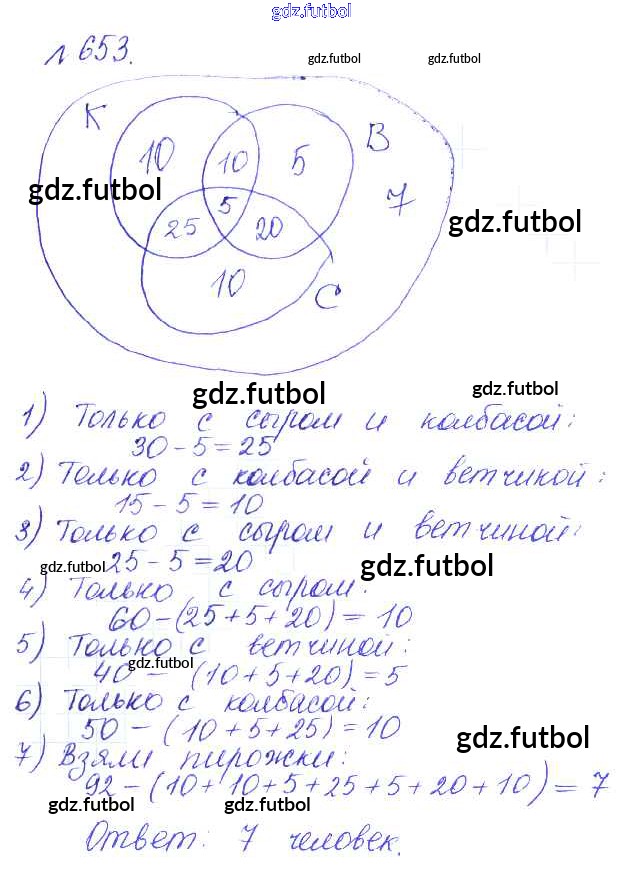 gdz.futbol
№ 653.
gdz.futbol gdz.futbol
К
В
10 10 5
gdz.futbol
5
7
gdz.futbol
25 20
10
С
gdz.futbol gdz.futbol
1) Только с сыром и колбасой:
30 - 5 = 25
2) Только с колбасой и ветчиной:
15 - 5 = 10
3) Только с сыром и ветчиной:
25 - 5 = 20
gdz.futbol gdz.futbol
4) Только с сыром:
60 - (25 + 5 + 20) = 10
5) Только с ветчиной:
40 - (10 + 5 + 20) = 5
gdz.futbol
6) Только с колбасой:
50 - (10 + 5 + 25) = 10
gdz.futbol
7) Взяли пирожки:
92 - (10 + 10 + 5 + 25 + 5 + 20 + 10) = 7
gdz.futbol gdz.futbol
Ответ: 7 человек.